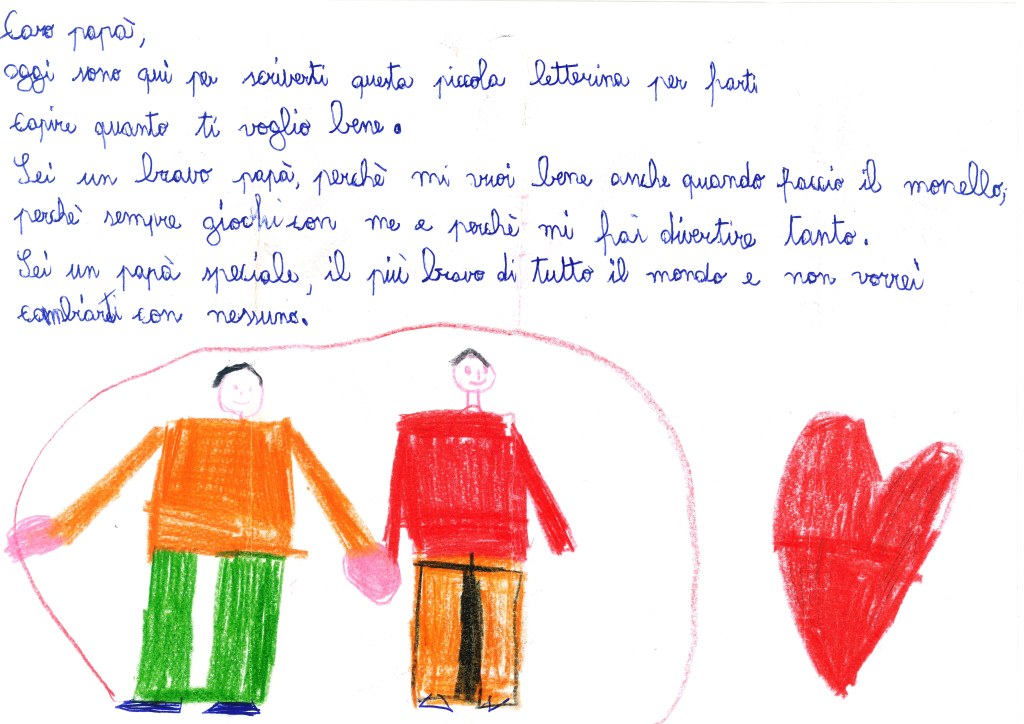 Caro papà,
oggi sono qui per scriverti questa piccola letterina per farti
capire quanto ti voglio bene.
Sei un bravo papà, perchè mi vuoi bene anche quando faccio il monello;
perchè sempre giochi con me e perchè mi fai divertire tanto.
Sei un papà speciale, il più bravo di tutto il mondo e non vorrei
cambiarti con nessuno.